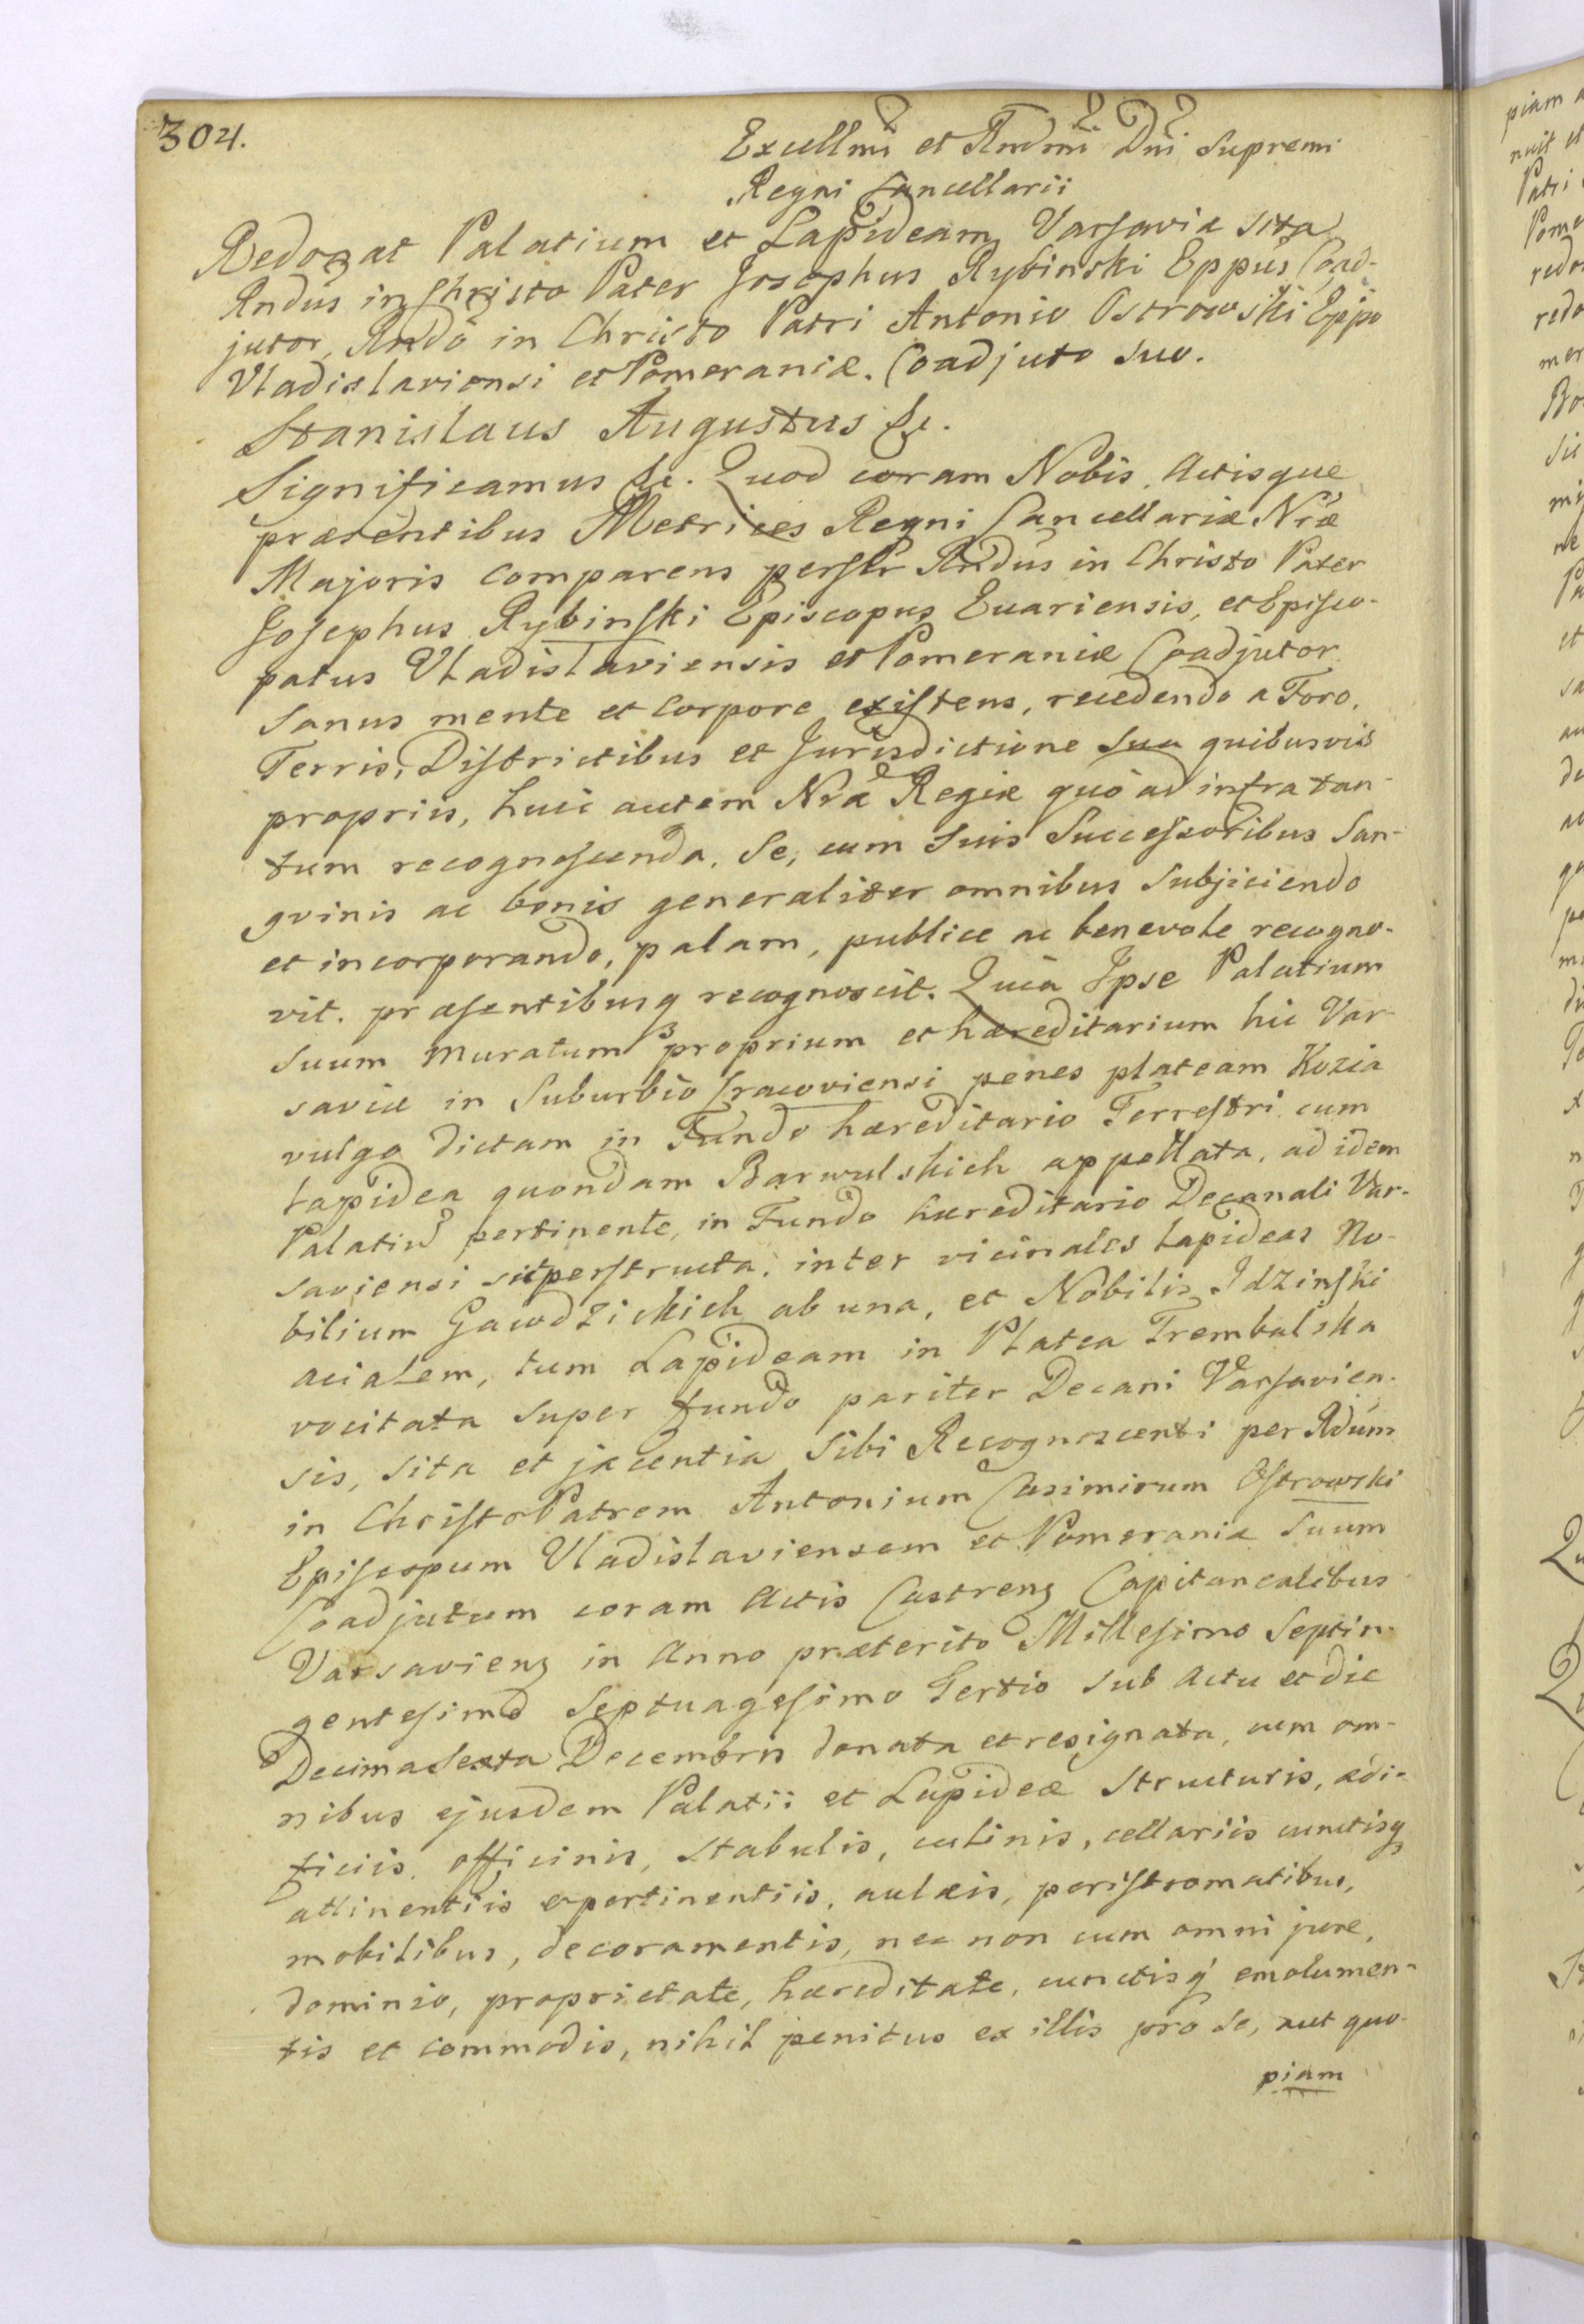 304.
Excellmi et Rndmi Dni Supremi
Regni Cancellarii
Redonat Palatium et Lapideam Varsaviæ sita
Rndus in Christo Pater Josephus Rybinski Eppus Coad-
jutor, Rndo in Christo Patri Antonio Ostrowski Eppo
Vladislaviensi et Pomeraniæ. Coadjuto suo.
Stanislaus Augustus &c.
Significamus &c. Quod coram Nobis, Actisque
præsentibus Metrices Regni Cancellariæ Nræ
Majoris comparens persłr Rndus in Christo Pater
Josephus Rybinski Episcopus Evariensis, et Episco-
patus Vladislaviensis et Pomeraniæ Coadjutor
sanus mente et corpore existens, recedendo a Foro,
Terris, Districtibus et Jurisdictione sua quibusvis
propriis, huic autem Nræ Regiæ quo ad infra tan-
tum recognoscenda, Se, cum suis Successoribus San-
gvinis ac bonis generaliter omnibus subjiciendo
et incorporando, palam, publice ac benevole recogno-
vit. præsentibusq recognoscit. Quia Ipse Palatium
suum muratum proprium et hæreditarium hic Var-
saviæ in Suburbio Cracoviensi penes plateam Kozia
vulgo dictam in Fundo hæreditario Terrestri cum
lapidea quondam Barwulskich appellata, ad idem
Palatiu pertinente, in Fundo hæreditario Decanali Var-
saviensi superstructa, inter vicinales lapideas No-
bilium Gawdzickich ab una, et Nobilis Idzinski
acialem, tum Lapideam in Platea Trembalska
vocitata super fundo pariter Decani Varsavien-
sis, sita et jacentia Sibi Recognoscenti per Rdum
in Christo Patrem Antonium Casimirum Ostrowski
Episcopum Vladislaviensem et Pomeraniæ suum
Coadjutum coram Actis Castrens Capitanealibus
Varsaviens in Anno præterito Millesimo Septin-
gentesimo Septuagesimo Tertio sub Actu et die
Decima Sexta Decembris donata et resignata, cum om-
nibus ejusdem Palatii et Lapideæ structuris, ædi-
ficiis, officinis, stabulis, culinis, cellariis cunctisq
attinentiis & pertinentiis, aulæis, peristromatibus,
mobilibus, decoramentis, nec non cum omni jure,
dominio, proprietate, hæreditate, cunctisq emolumen-
tis et commodis, nihil penitus ex illis pro Se, aut quo-
piam